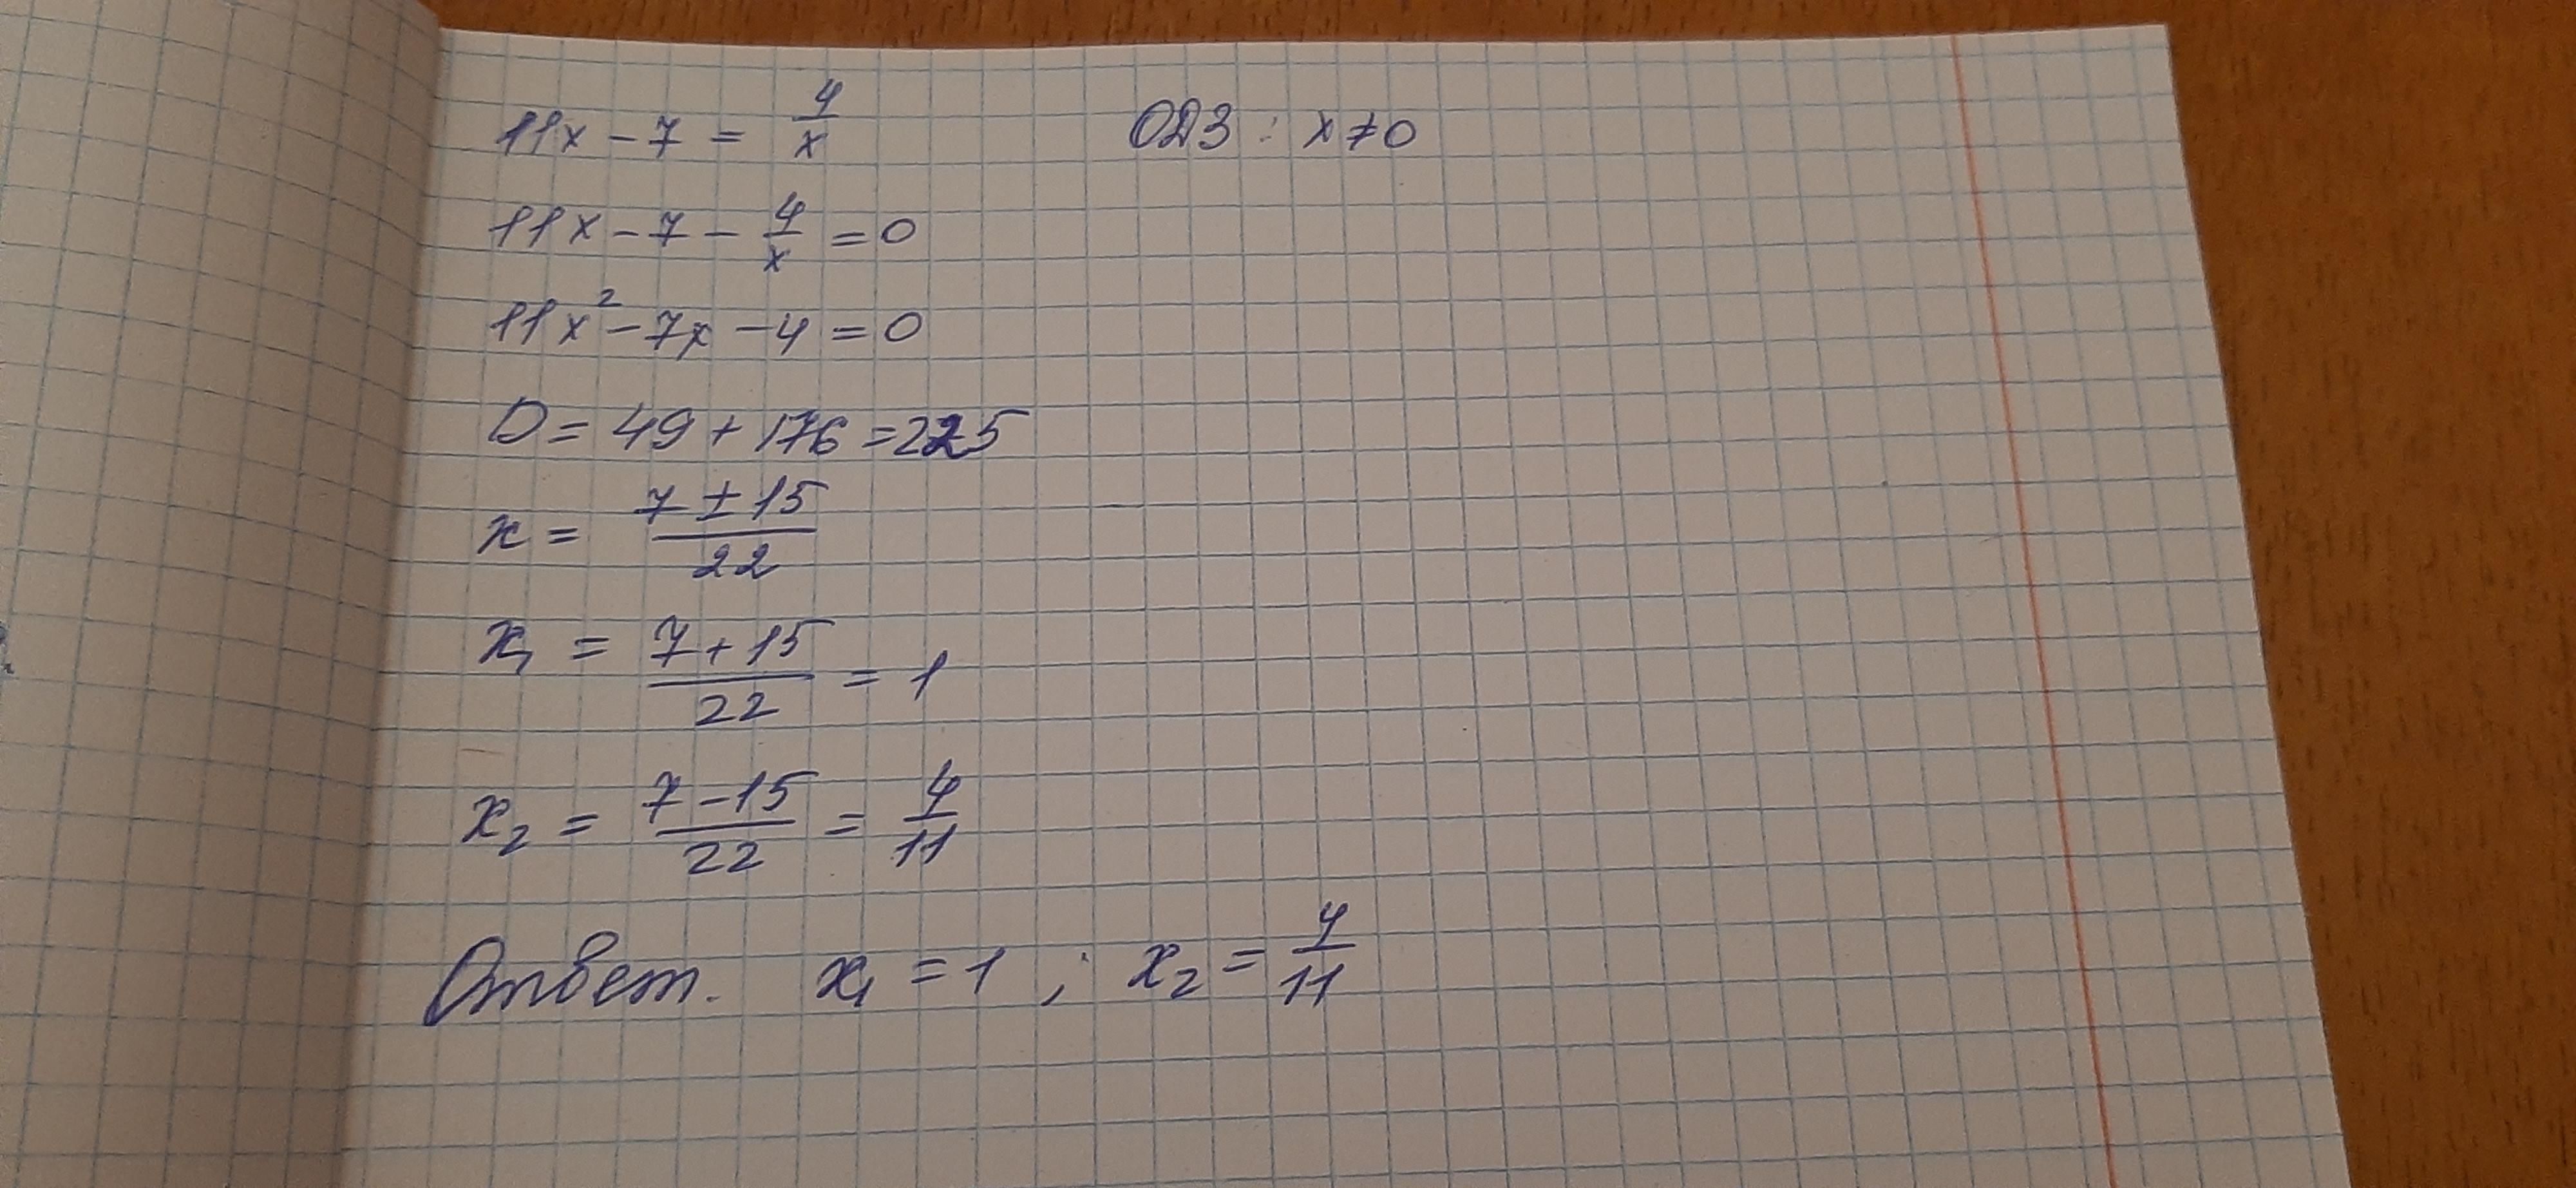 11x - 7 = 4/x ОДЗ : x ≠ 0
11x - 7 - 4/x = 0
11x² - 7x - 4 = 0
D = 49 + 176 = 225
x = (7 ± 15)/22
x₁ = (7 + 15)/22 = 1
x₂ = (7 - 15)/22 = 4/11
Ответ. x₁ = 1 ; x₂ = 4/11